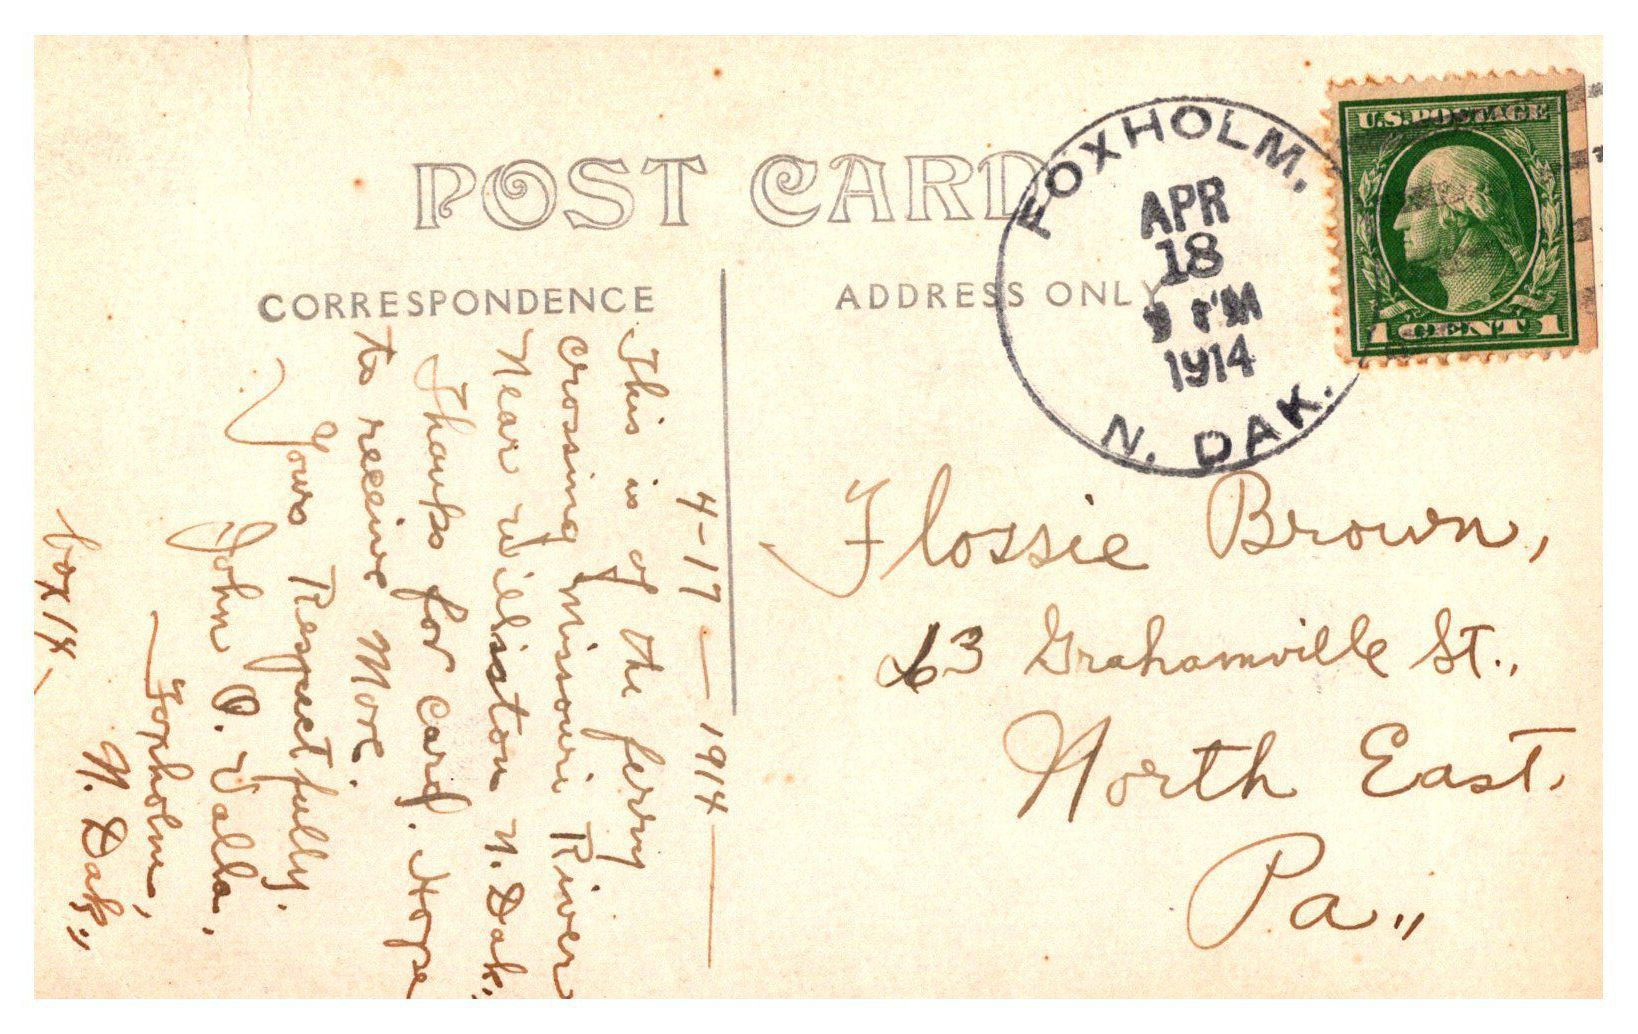 POST CARD
CORRESPONDENCE
ADDRESS ONLY
FOXHOLM,
APR
18
PM
1914
N. DAK.
U.S. POSTAGE
1 CENT 1
4-17-1914
This is of the ferry
crossing Missouri River
Near Williston N. Dak.,
Thanks for card. Hope
to receive More.
Yours Respectfully.
John O. Valla,
Foxholm,
N. Dak.,
box 14
Flossie Brown,
63 Grahamville St.,
North East.
Pa.,